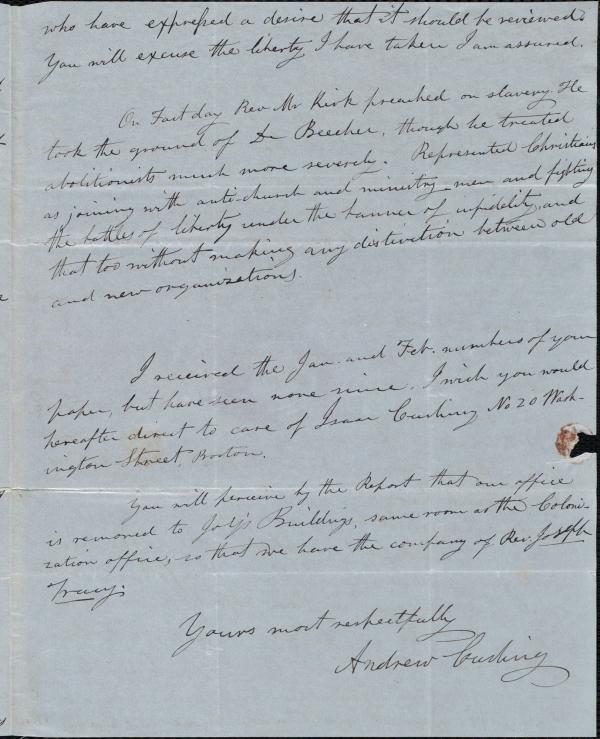 who have expressed a desire that it should be reviewed.
You will excuse the liberty I have taken I am assured.
On Fast day Rev Mr Kirk preached on slavery. He
took the ground of Dr Beecher, though he treated
abolitionists much more severely. Represented Christians
as joining with anti-church and ministry men and fighting
the battles of liberty under the banner of infidelity, and
that too without making any distinction between old
and new organizations.
I received the Jan. and Feb. numbers of your
paper, but have seen none since. I wish you would
hereafter direct to care of Isaac Cushing No 20 Wash-
ington Street, Boston.
You will perceive by the Report that our office
is removed to Joy's Buildings, same room as the Coloni-
zation office, so that we have the company of Rev. Joseph
Tracy.
Yours most respectfully
Andrew Cushing